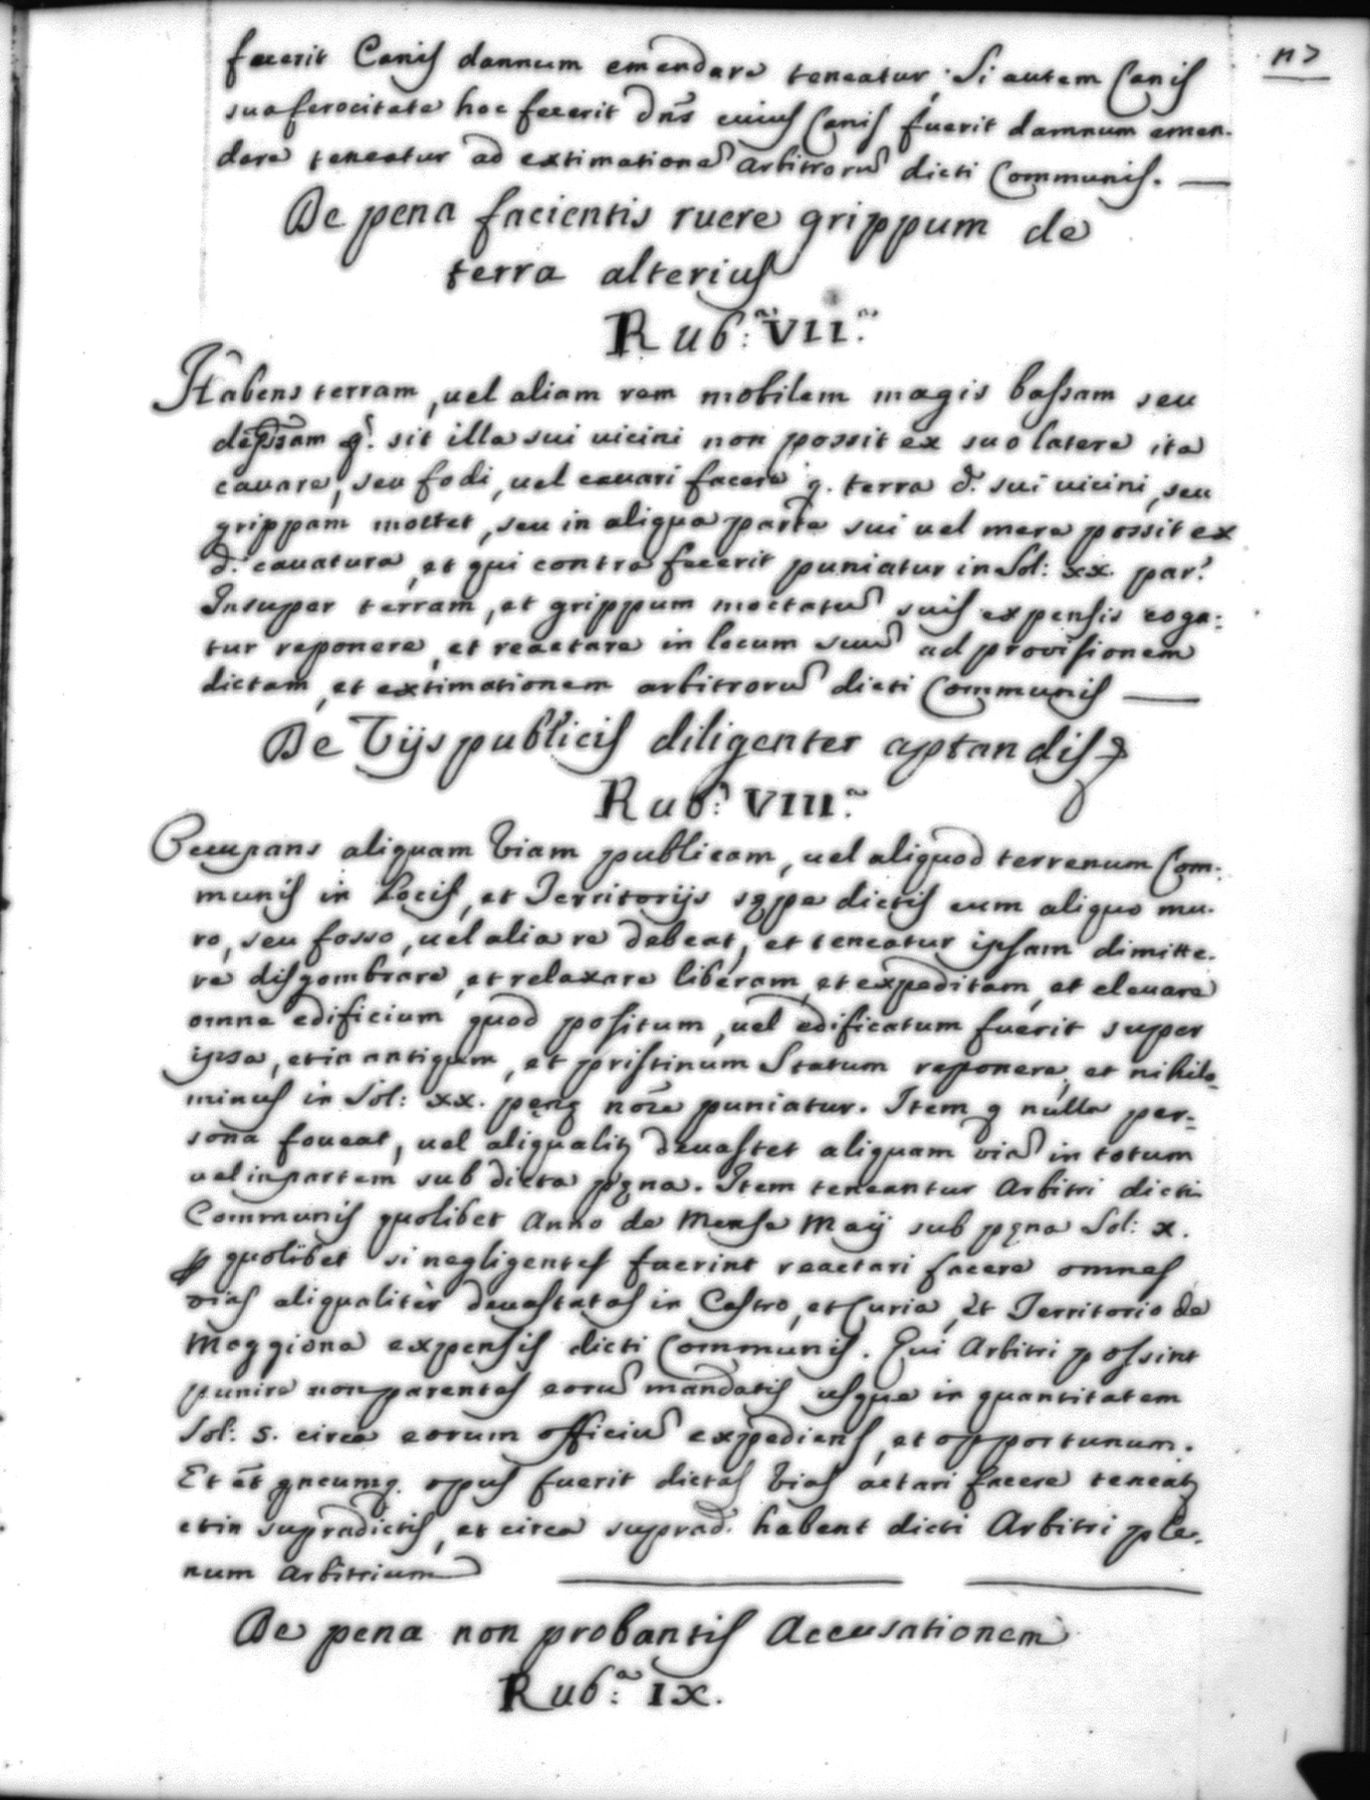 117
fecerit Canis dannum emendare teneatur; Si autem Canis
sua ferocitate hoc fecerit Dns cuius Canis fuerit damnum emen-
dare teneatur ad extimatione arbitroru dicti Communis.
De pena facientis ruere grippum de
terra alterius
Rub:a VII:a
Habens terram, uel aliam rem mobilem magis bassam seu
q. sit illa sui uicini non possit ex suo latere ita
cauare, seu fodi, uel cauari facere q. terra d. sui uicini, seu
grippam mottet, seu in aliqua parte sui uel mere possit ex
d. cauatura, et qui contra fecerit puniatur in Sol: xx. par:
Insuper terram, et grippum moctatu suis expensis coga:
tur reponere, et reactare in locum suu ad provisionem
dictam, et extimationem arbitroru dicti Communis
De Vijs publicis diligenter aptandis
Rub:a VIII:a
Occupans aliquam Viam publicam, uel aliquod terrenum Com:
munis in Locis, et Territorijs sępe dictis cum aliquo mu-
ro, seu fosso, uel alia re debeat, et teneatur ipsam dimitte-
re disgombrare, et relaxare liberam, et expeditam, et eleuare
omne edificium quod positum, uel edificatum fuerit super
ipsa, et in antiquum, et pristinum Statum reponere, et nihilo-
minus in Sol: xx. pęnę noie puniatur. Item q nulla per-
sona foueat, uel aliqualitz deuastet aliquam via in totum
uel in partem sub dicta pęna. Item teneantur Arbitri dicti
Communis quolibet Anno de Mense Maij sub pęna Sol: x.
p quolibet si negligentes fuerint reactari facere omnes
vias aliqualiter deuastatas in Castro, et Curia, et Territorio de
Moggiona expensis dicti Communis. Qui Arbitri possint
punire non parentes eoru mandatis usque in quantitatem
Sol: 5. circa eorum officiu expediens, et opportunum.
Et et qncumq. opus fuerit dictas Vias actari facere teneatz
et in supradictis, et circa suprad. habent dicti Arbitri ple-
num Arbitrium
De pena non probantis Accusationem
Rub:a IX.